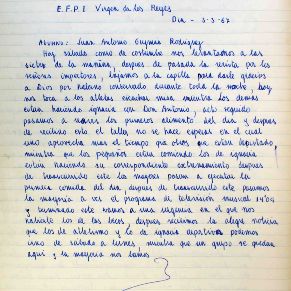 E.F.P.I Virgen de los Reyes
Dia - 3-3-67
Alumno: Juan Antonio Guzman Rodriguez
Hoy sabado como de costumbre nos levantamos a las
siete de la mañana, despues de pasada la revista por los
señores inspectores, bajamos a la capilla para darle gracias
a Dios por habernos conservado durante toda la noche, hoy
nos toca a los atletas oir misa mientra los demas
estan haciendo ignacia con Don Antonio, acto seguido
pasamos a los primeros elementos del dia y despues
de recibido esto el taller no se hace esperar en el cual
uno aprovecha mas el tiempo que otros
mientra que los pequeños estan comiendo los de ignacia
estan haciendo su correspondiente entrenamiento despues
de transcurrido este los mayores pasan a ejecutar la
primera comida del dia despues de transcurrido este pasamos
la mayoria a ver el programa de television musical 14'04
y terminado este vamos a una en el que nos
de las becas, despues recibimos la alegre noticia
que los de atletismo y lo de ignacia deportiva podemos
irnos de sabado a lunes, mientra que un grupo se quedan
aqui y la mayoria nos vamos